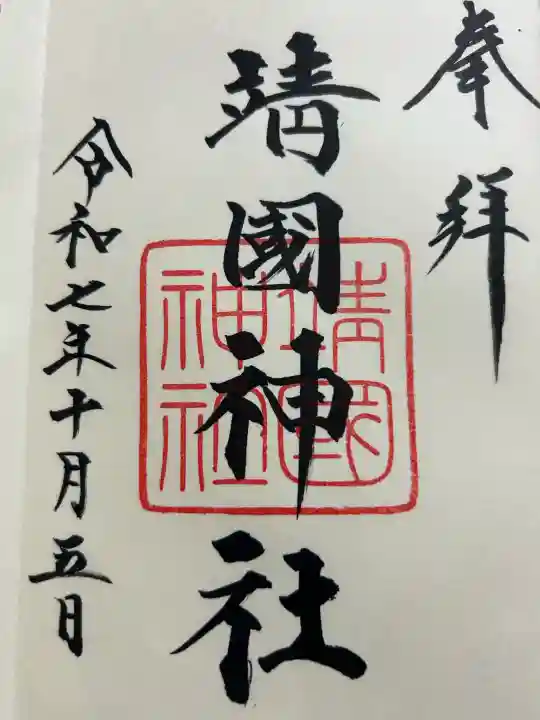 奉拝
靖國神社
靖國
神社
令和七年十月五日